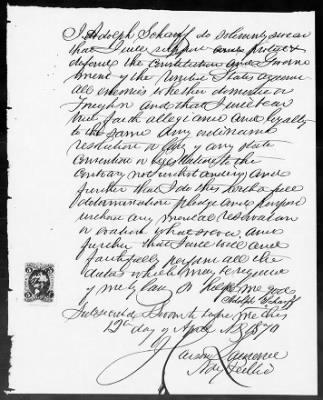 I Adolph Scharff do solemnly swear
that I will support and protect &
defend the Constitution and Govern
ment of the United States against
all enemies whether domestic or
Foreign and that I will bear
true faith allegiance and loyalty
to the same any ordinance
resolution or law of any state
Convention or legislature to the
Contrary notwithstanding and
further that I do this with a full
determination pledge and purpose
without any mental reservation
or evasion whatsoever and
further that I will well and
faithfully perform all the
duties which may be required
of me by law so help me God
Adolph Scharff
Subscribed & Sworn to before me this
day of April AD 1870
Lawrence
Notr Public